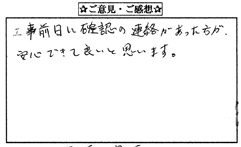 ☆ご意見・ご感想☆
工事前日に確認の連絡があった方が、
安心できて良いと思います。